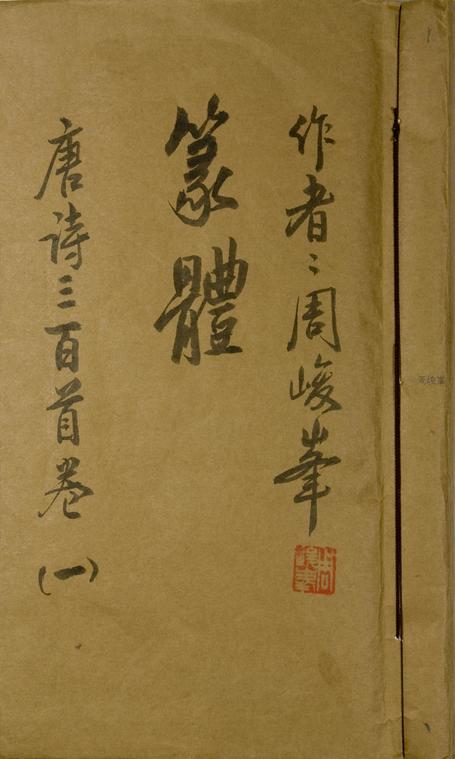 作者：周峻峯
篆體
唐诗三百首卷
(一)
周峻峯